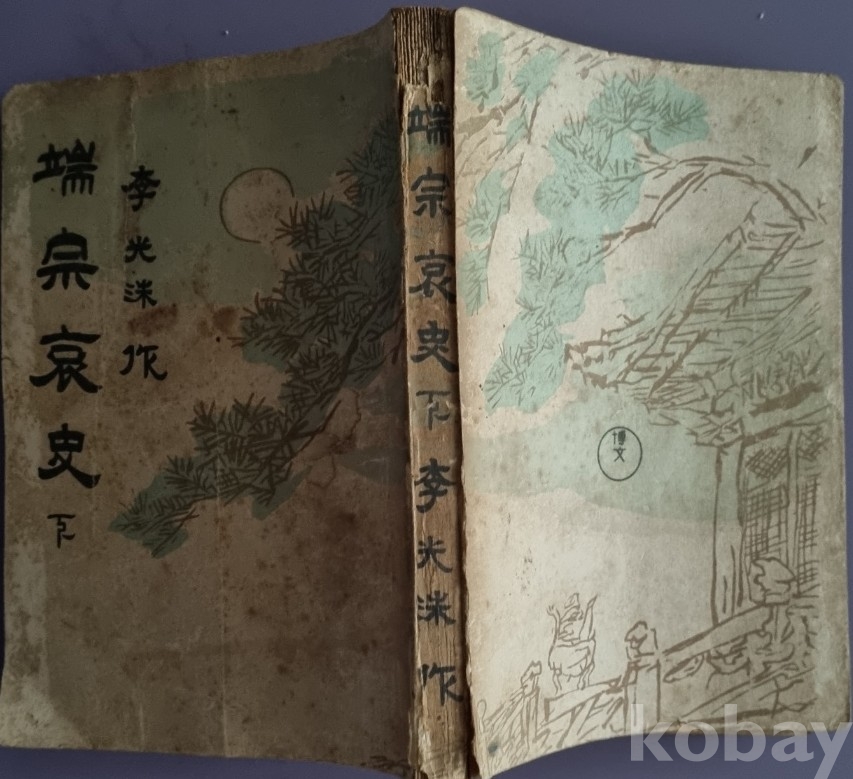 端宗哀史 下
李光洙 作
端宗哀史 下 李光洙 作
博文
kobay